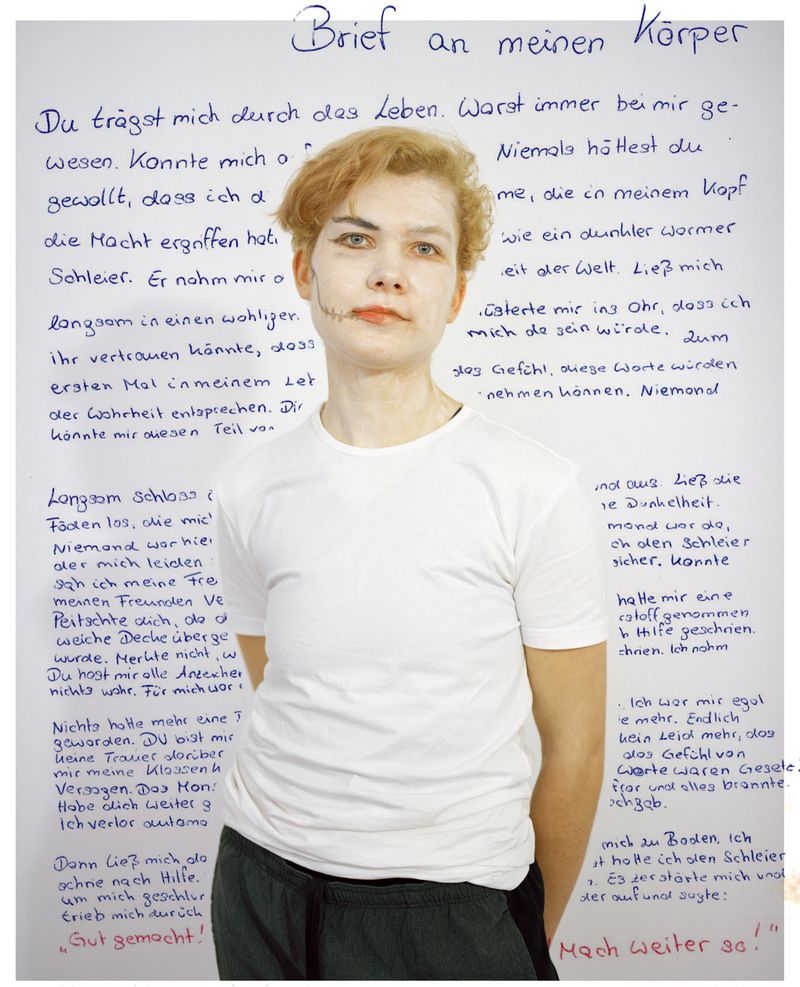 Brief an meinen Körper
Du trägst mich durch das Leben. Warst immer bei mir ge-
wesen. Konnte mich Niemals hättest du
gewollt, dass ich die in meinem Kopf
die Macht ergriffen wie ein dunkler warmer
Schleier. Er nahm mir der Welt. Ließ mich
langsam in einen wohligen mir ins Ohr, dass ich
ihr vertrauen könnte, dass mich da sein würde. Zum
ersten Mal in meinem das Gefühl, diese Worte würden
der Wahrheit entsprechen. nehmen können. Niemand
könnte mir diesen Teil von
Langsam schloss aus. Ließ die
Fäden los, die Dunkelheit.
Niemand war hier war da,
der mich leiden den Schleier
sah ich meine sicher. Konnte
meinen Freunden hatte mir eine
Peitschte dich, da genommen
weiche Decke Hilfe geschrien.
wurde. Merkte nicht, Ich nahm
Du hast mir alle
nichts wahr. Für mich war Ich war mir egal
Nichts hatte mehr eine mehr. Endlich
geworden. DU bist mir kein Leid mehr, das
keine Trauer darüber das Gefühl von
mir meine Worte waren Gesetz
Versagen. Das und alles brannte.
Habe dich weiter
ich verlor
Dann ließ mich mich zu Boden. Ich
schrie nach Hilfe. hatte ich den Schleier
um mich Es zerstörte mich und
trieb mich durch der auf und sagte:
„Gut gemacht! Mach weiter so!“